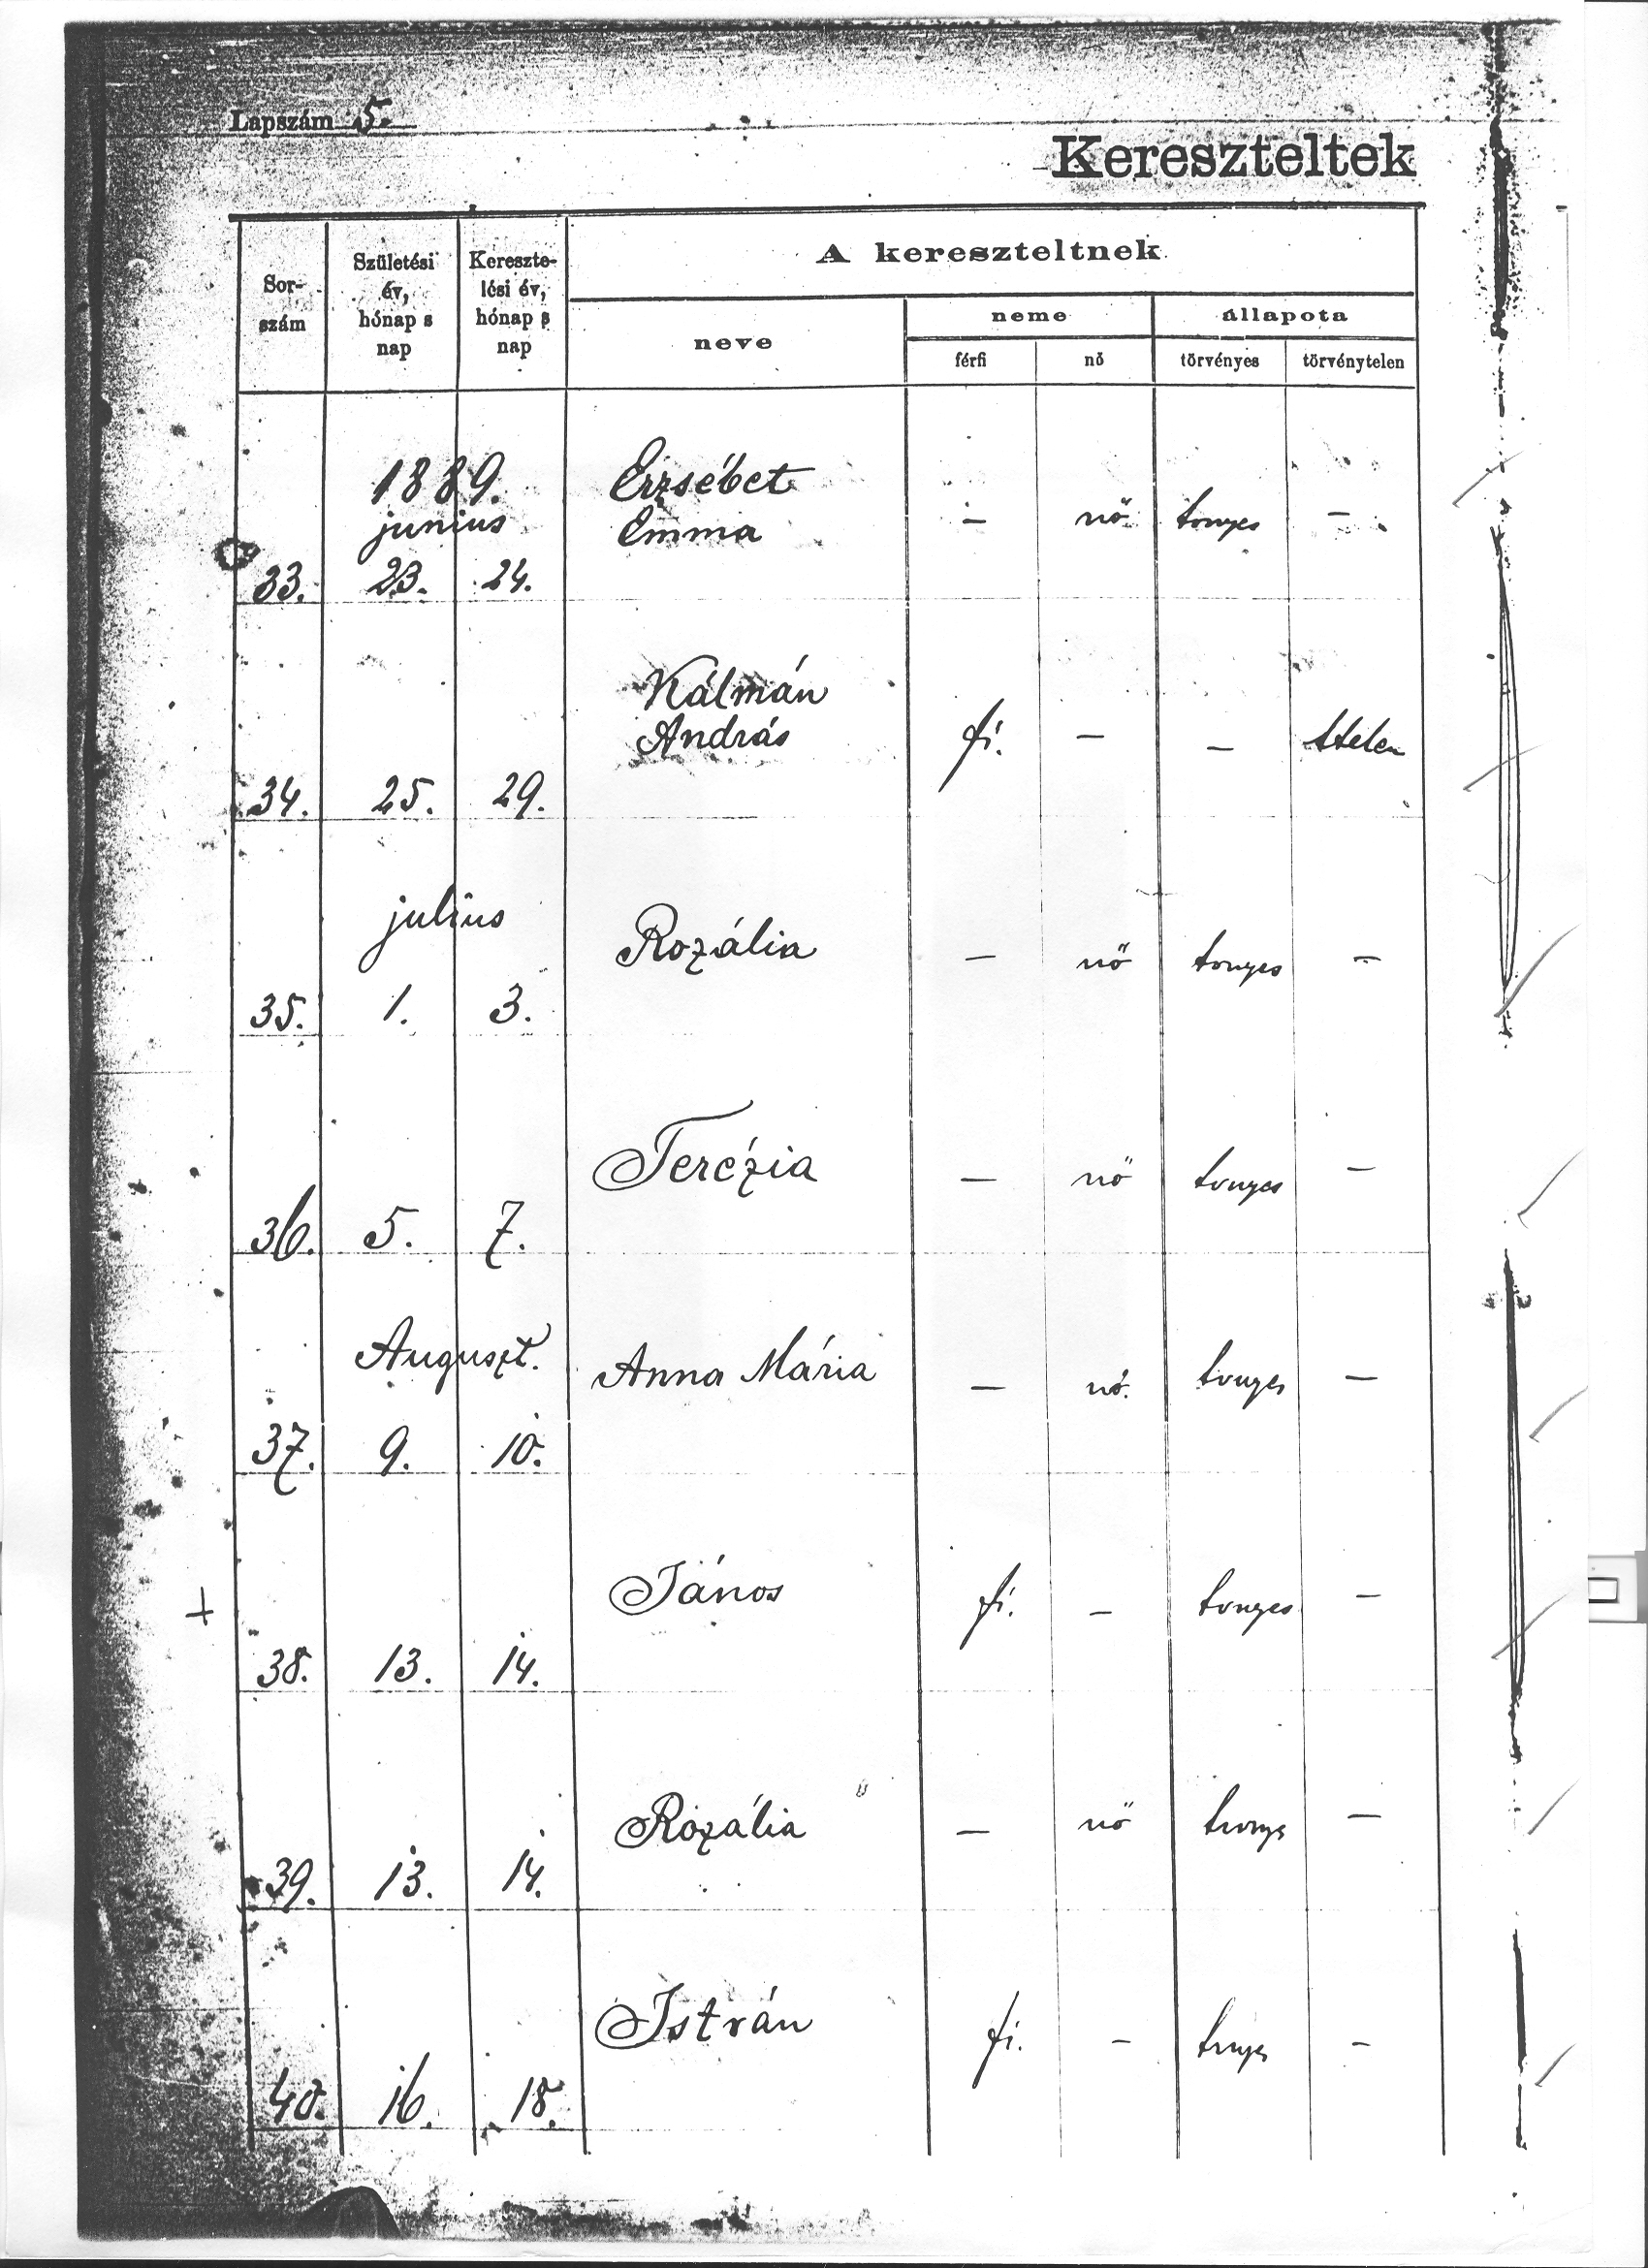 Lapszám 5.
Kereszteltek
Sor-
szám
Születési
év,
hónap s
nap
Keresztelési év,
hónap s
nap
A kereszteltnek
neve
neme
állapota
férfi
nő
törvényes
törvénytelen
1889.
junius
Erzsébet
Emma
– nő tvnyes –
33. 23. 24.
Kálmán
András
fi. – – ttelen
34. 25. 29.
julius
Rozália – nő tvnyes –
35. 1. 3.
Terézia – nő tvnyes –
36. 5. 7.
Auguszt.
Anna Mária – nő. tvnyes –
37. 9. 10.
János fi. – tvnyes –
38. 13. 14.
Rozália – nő tvnyes –
39. 13. 14.
István fi. – tvnyes –
40. 16. 18.